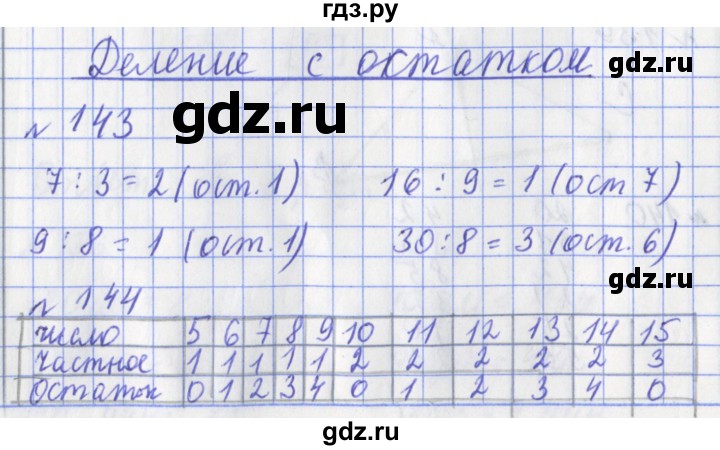 гдз.ру
Деление с остатком
gdz.ru
№ 143
7 : 3 = 2 (ост. 1) 16 : 9 = 1 (ост 7)
9 : 8 = 1 (ост. 1) 30 : 8 = 3 (ост. 6)
gdz.ru
№ 144
число 5 6 7 8 9 10 11 12 13 14 15
частное 1 1 1 1 1 2 2 2 2 2 3
остаток 0 1 2 3 4 0 1 2 3 4 0
gdz.ru
gdz.ru